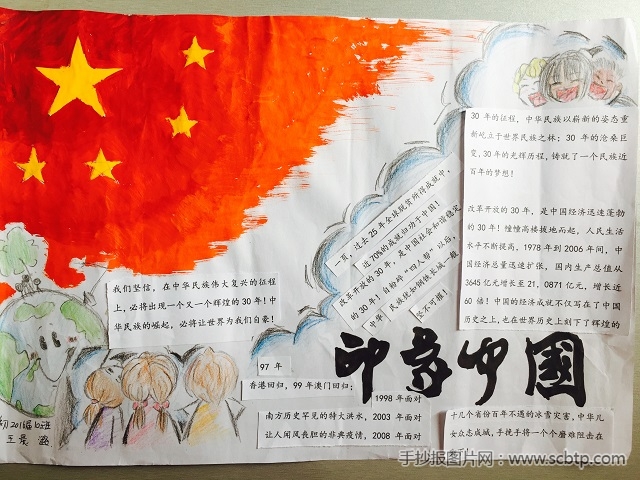 30 年的征程，中华民族以崭新的姿态重
新屹立于世界民族之林；30 年的沧桑巨
变，30 年的光辉历程，铸就了一个民族近
百年的梦想！
改革开放的 30 年，是中国经济迅速蓬勃
的 30 年！幢幢高楼拔地而起，人民生活
水平不断提高，1978 年到 2006 年间，中
国经济总量迅速扩张，国内生产总值从
3645 亿元增长至 21，0871 亿元，增长近
60 倍！中国的经济成就不仅写在了中国
历史之上，也在世界历史上刻下了辉煌的
一页，过去 25 年全球脱贫所得成就中，
近 70%的成就归功于中国！
改革开放的 30 年，是中国社会和谐稳定
的 30 年！自粉碎“四人帮”以后，
中华民族便如钢铁长城一般
坚不可摧！
我们坚信，在中华民族伟大复兴的征程
上，必将出现一个又一个辉煌的 30 年！中
华民族的崛起，必将让世界为我们自豪！
印象中国
97 年
香港回归，99 年澳门回归；
1998 年面对
南方历史罕见的特大洪水，2003 年面对
让人闻风丧胆的非典疫情，2008 年面对
十几个省份百年不遇的冰雪灾害，中华儿
女众志成城，手挽手将一个个磨难阻击在
手抄报图片网：www.scbtp.com